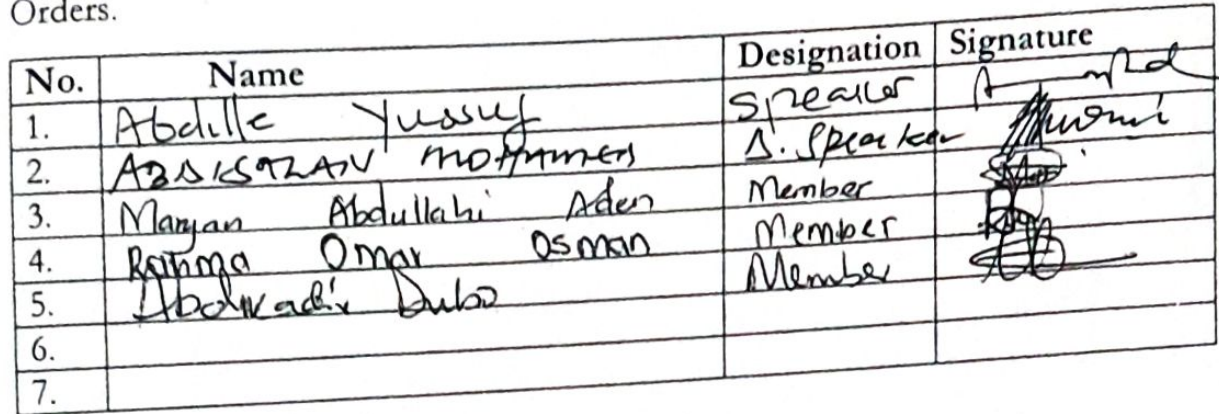 Orders.
No. Name Designation Signature
1. Abdille Yussuf Speaker
2. ABDISALAN MOHAMMED D. Speaker
3. Maryan Abdullahi Aden Member
4. Rahma Omar Osman Member
5. Abdikadir Dubo Member
6.
7.